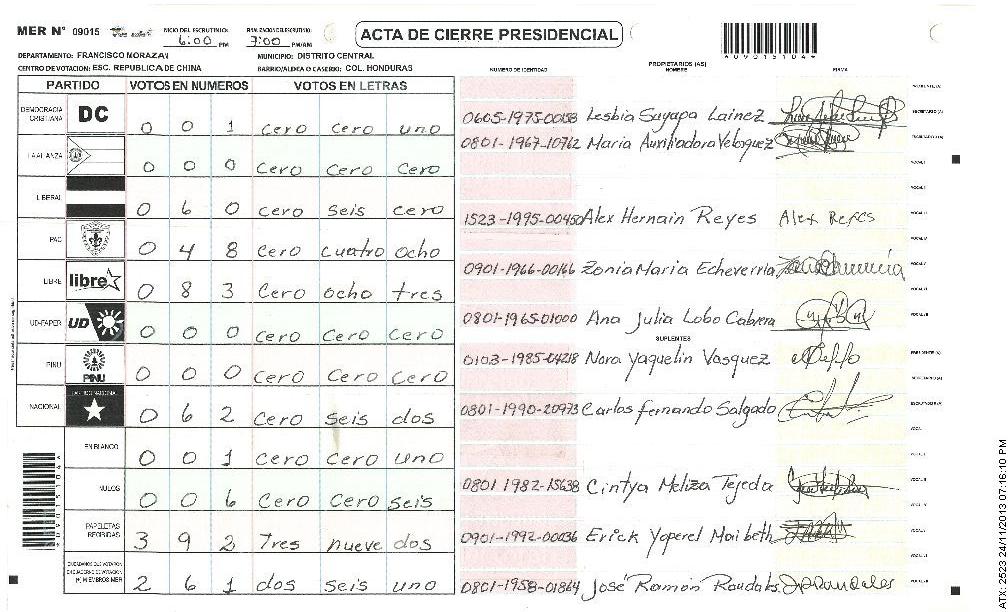 MER N° 09015
INICIO DEL ESCRUTINIO: 6:00 PM
FINALIZACION DEL ESCRUTINIO: 7:00 PM/AM
ACTA DE CIERRE PRESIDENCIAL
*09015104*
DEPARTAMENTO: FRANCISCO MORAZAN
MUNICIPIO: DISTRITO CENTRAL
CENTRO DE VOTACION: ESC. REPUBLICA DE CHINA
BARRIO/ALDEA O CASERIO: COL. HONDURAS
PARTIDO VOTOS EN NUMEROS VOTOS EN LETRAS
DEMOCRACIA CRISTIANA DC 0 0 1 cero cero uno
LA ALIANZA 0 0 0 cero cero cero
LIBERAL 0 6 0 cero seis cero
PAC 0 4 8 cero cuatro ocho
LIBRE libre 0 8 3 cero ocho tres
UD-FAPER UD 0 0 0 cero cero cero
PINU PINU 0 0 0 cero cero cero
NACIONAL PARTIDO NACIONAL 0 6 2 cero seis dos
EN BLANCO 0 0 1 cero cero uno
NULOS 0 0 6 cero cero seis
PAPELETAS RECIBIDAS 3 9 2 Tres nueve dos
CIUDADANOS QUE VOTARON EN CUADERNO DE VOTACION (+) MIEMBROS MER 2 6 1 dos seis uno
*09015104*
NUMERO DE IDENTIDAD
PROPIETARIOS (AS)
NOMBRE
FIRMA
PRESIDENTE (A)
0605-1975-00158 Lesbia Suyapa Lainez SECRETARIO (A)
0801-1967-10762 Maria Auxiliadora Velasquez ESCRUTADOR (A)
VOCAL I
VOCAL II
1523-1995-00450 Alex Hernain Reyes Alex Reyes VOCAL III
VOCAL IV
0901-1966-00166 Zonia Maria Echeverria VOCAL V
VOCAL VI
0801-1965-01000 Ana Julia Lobo Cabrera VOCAL VII
SUPLENTES
0103-1985-04218 Nora Yaquelin Vasquez PRESIDENTE (A)
SECRETARIO (A)
0801-1990-20973 Carlos Fernando Salgado ESCRUTADOR (A)
VOCAL I
VOCAL II
0801 1982-15638 Cintya Meliza Tejeda VOCAL III
VOCAL IV
0901-1992-00036 Erick Yoperel Maibeth VOCAL V
VOCAL VI
0801-1958-01864 José Ramón Raudales VOCAL VII
ATX-2523 24/11/2013 07:16:10 PM